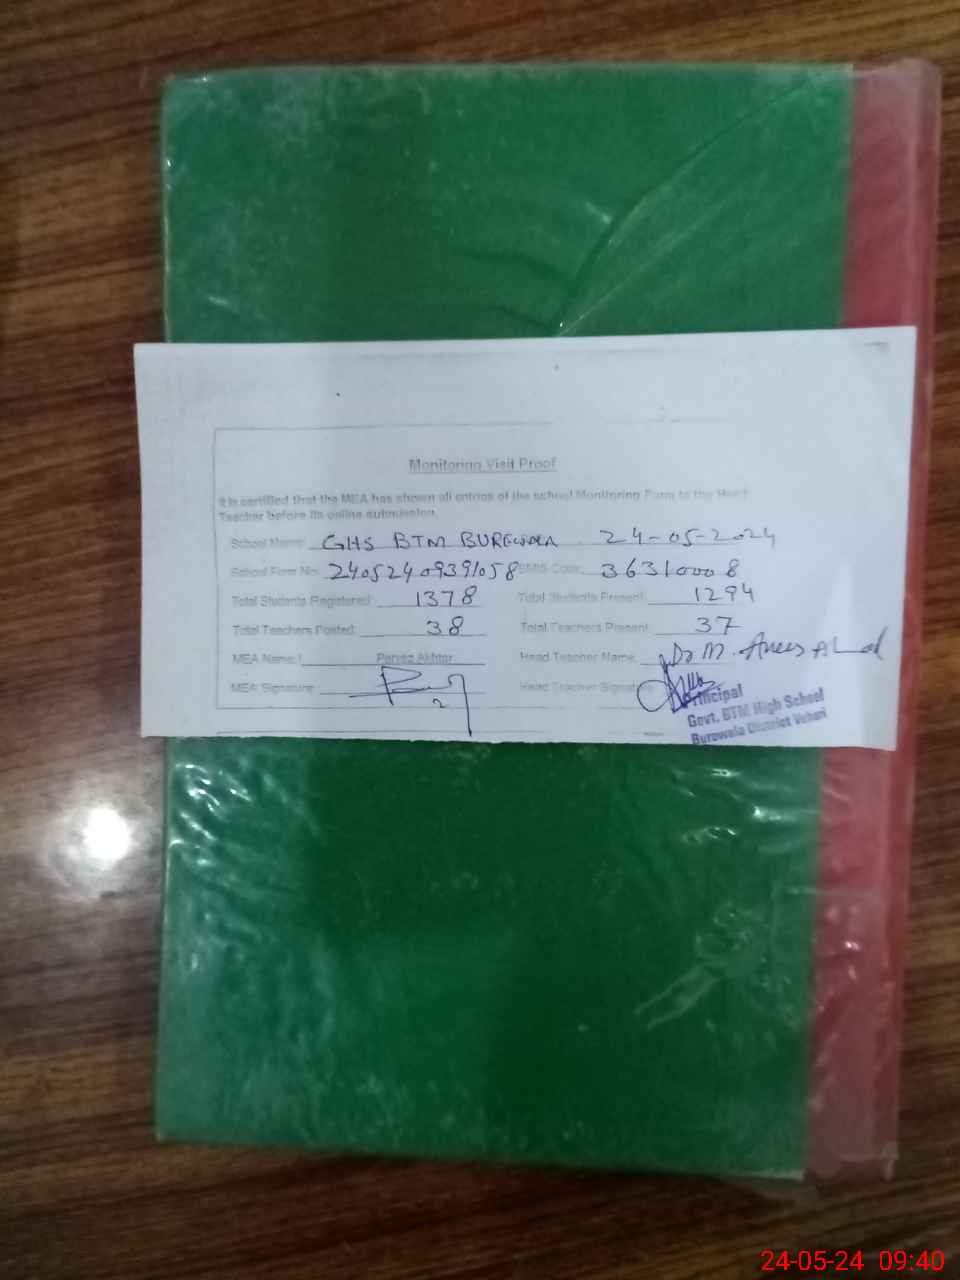 Monitoring Visit Proof
It is certified that the MEA has shown all entries of the school Monitoring Form to the Head
Teacher before its online submission.
School Name: GHS BTM BUREWALA 24-05-2024
School Form No: 24052409391058 EMIS Code: 36310008
Total Students Registered: 1378 Total Students Present: 1294
Total Teachers Posted: 38 Total Teachers Present: 37
MEA Name: Pervez Akhtar Head Teacher Name: Dr M. Anees Ahmad
MEA Signature Head Teacher Signature
Principal
Govt. BTM High School
Burewala District Vehari
24-05-24 09:40